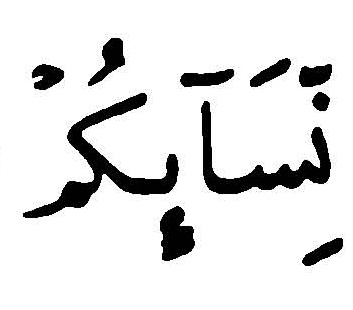 نِّسَآئِكُمْ